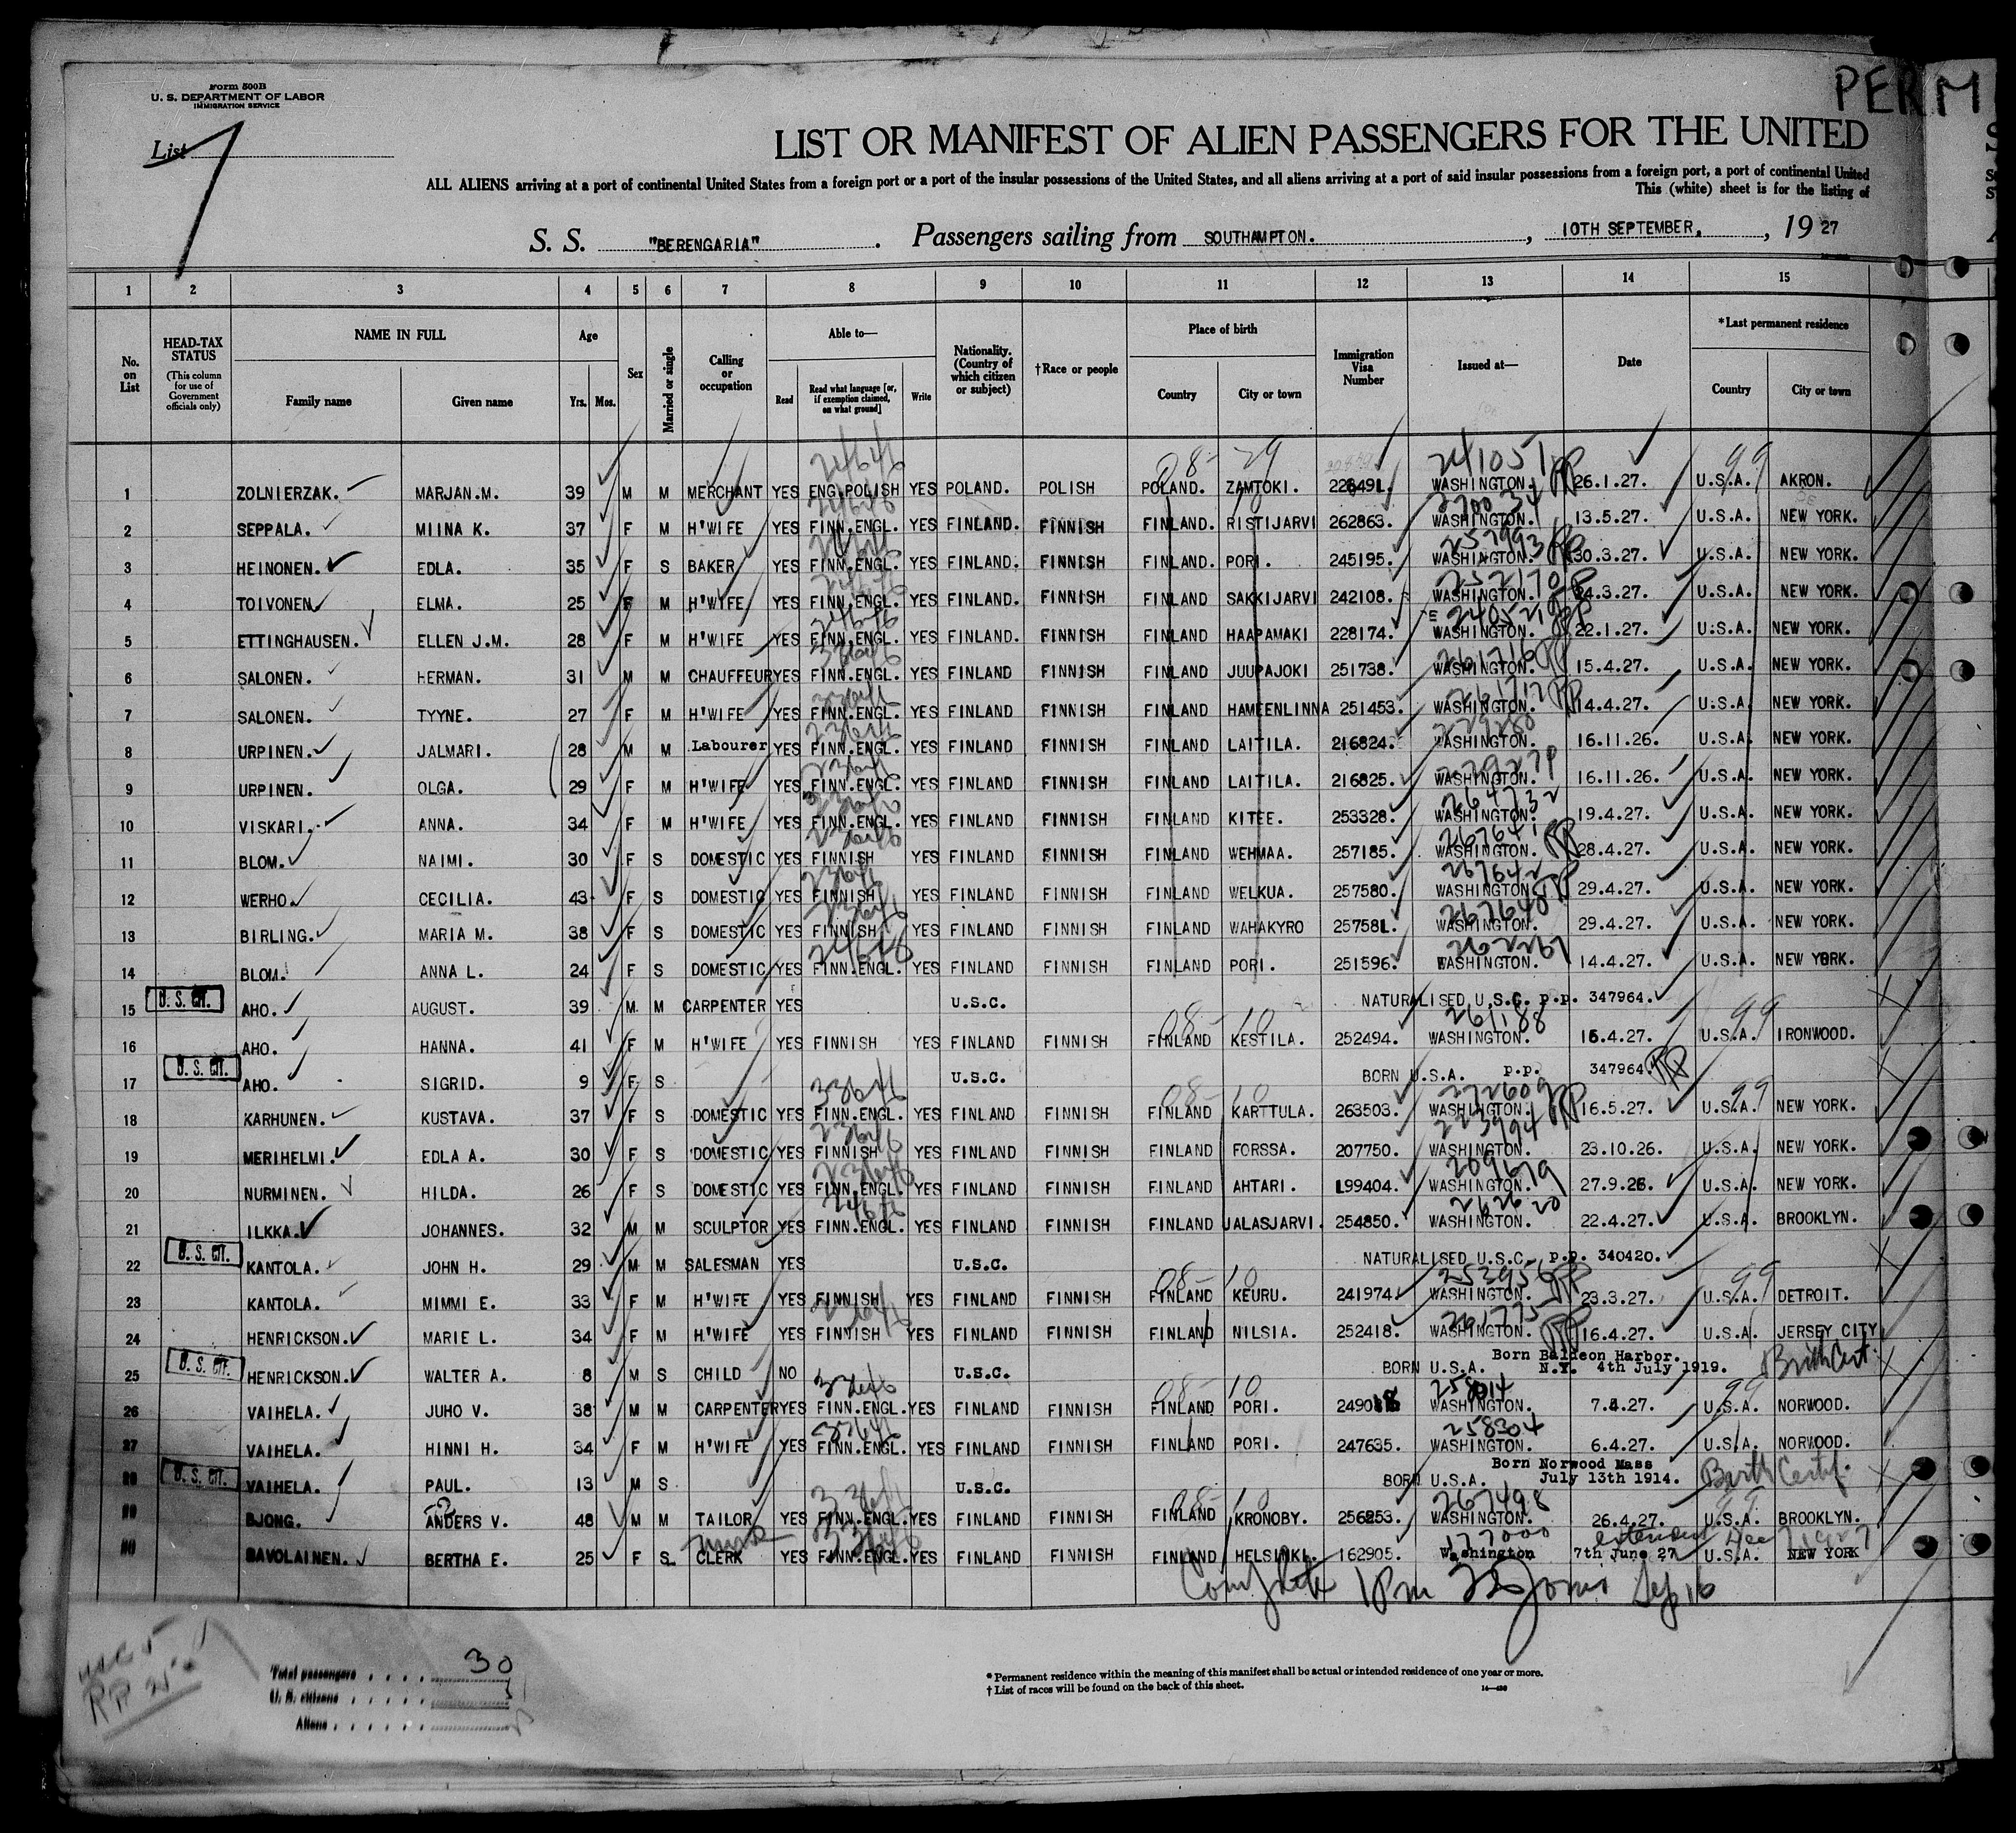 PERM
Form 500B
U. S. DEPARTMENT OF LABOR
IMMIGRATION SERVICE
List 7
LIST OR MANIFEST OF ALIEN PASSENGERS FOR THE UNITED
ALL ALIENS arriving at a port of continental United States from a foreign port or a port of the insular possessions of the United States, and all aliens arriving at a port of said insular possessions from a foreign port, a port of continental United
This (white) sheet is for the listing of
S. S. "BERENGARIA". Passengers sailing from SOUTHAMPTON., 10TH SEPTEMBER., 19 27
1 2 3 4 5 6 7 8 9 10 11 12 13 14 15
No. on List
HEAD-TAX STATUS (This column for use of Government officials only)
NAME IN FULL Family name Given name
Age Yrs. Mos.
Sex
Married or single
Calling or occupation
Able to— Read Read what language [or, if exemption claimed, on what ground] Write
Nationality. (Country of which citizen or subject)
†Race or people
Place of birth Country City or town
Immigration Visa Number
Issued at—
Date
*Last permanent residence Country City or town
1 ZOLNIERZAK. MARJAN.M. 39 M M MERCHANT YES ENG.POLISH YES POLAND. POLISH POLAND. ZAMTOKI. 226491. WASHINGTON. 26.1.27. U.S.A. AKRON.
2 SEPPALA. MIINA K. 37 F M H'WIFE YES FINN.ENGL. YES FINLAND. FINNISH FINLAND. RISTIJARVI 262863. WASHINGTON. 13.5.27. U.S.A. NEW YORK.
3 HEINONEN. EDLA. 35 F S BAKER YES FINN.ENGL. YES FINLAND. FINNISH FINLAND. PORI. 245195. WASHINGTON. 30.3.27. U.S.A. NEW YORK.
4 TOIVONEN. ELMA. 25 F M H'WIFE YES FINN.ENGL. YES FINLAND. FINNISH FINLAND SAKKIJARVI 242108. WASHINGTON. 24.3.27. U.S.A. NEW YORK.
5 ETTINGHAUSEN. ELLEN J.M. 28 F M H'WIFE YES FINN.ENGL. YES FINLAND. FINNISH FINLAND HAAPAMAKI 228174. WASHINGTON. 22.1.27. U.S.A. NEW YORK.
6 SALONEN. HERMAN. 31 M M CHAUFFEUR YES FINN.ENGL. YES FINLAND FINNISH FINLAND JUUPAJOKI 251738. WASHINGTON. 15.4.27. U.S.A. NEW YORK.
7 SALONEN. TYYNE. 27 F M H'WIFE YES FINN.ENGL. YES FINLAND FINNISH FINLAND HAMEENLINNA 251453. WASHINGTON. 14.4.27. U.S.A. NEW YORK.
8 URPINEN. JALMARI. 28 M M Labourer YES FINN.ENGL. YES FINLAND FINNISH FINLAND LAITILA. 216824. WASHINGTON. 16.11.26. U.S.A. NEW YORK.
9 URPINEN. OLGA. 29 F M H'WIFE YES FINN.ENGL. YES FINLAND FINNISH FINLAND LAITILA. 216825. WASHINGTON. 16.11.26. U.S.A. NEW YORK.
10 VISKARI. ANNA. 34 F M H'WIFE YES FINN.ENGL. YES FINLAND FINNISH FINLAND KITEE. 253328. WASHINGTON. 19.4.27. U.S.A. NEW YORK.
11 BLOM. NAIMI. 30 F S DOMESTIC YES FINNISH YES FINLAND FINNISH FINLAND WEHMAA. 257185. WASHINGTON. 28.4.27. U.S.A. NEW YORK.
12 WERHO. CECILIA. 43 F S DOMESTIC YES FINNISH YES FINLAND FINNISH FINLAND WELKUA. 257580. WASHINGTON. 29.4.27. U.S.A. NEW YORK.
13 BIRLING. MARIA M. 38 F S DOMESTIC YES FINNISH YES FINLAND FINNISH FINLAND WAHAKYRO 257581. WASHINGTON. 29.4.27. U.S.A. NEW YORK.
14 BLOM. ANNA L. 24 F S DOMESTIC YES FINN.ENGL. YES FINLAND FINNISH FINLAND PORI. 251596. WASHINGTON. 14.4.27. U.S.A. NEW YORK.
15 U.S. CIT. AHO. AUGUST. 39 M. M CARPENTER YES U.S.C. NATURALISED U.S.C. p.p. 347964.
16 AHO. HANNA. 41 F M H'WIFE YES FINNISH YES FINLAND FINNISH FINLAND KESTILA. 252494. WASHINGTON. 15.4.27. U.S.A. IRONWOOD.
17 U.S. CIT. AHO. SIGRID. 9 F S U.S.C. BORN U.S.A. p.p. 347964.
18 KARHUNEN. KUSTAVA. 37 F S DOMESTIC YES FINN.ENGL. YES FINLAND FINNISH FINLAND KARTTULA. 263503. WASHINGTON. 16.5.27. U.S.A. NEW YORK.
19 MERIHELMI. EDLA A. 30 F S DOMESTIC YES FINNISH YES FINLAND FINNISH FINLAND FORSSA. 207750. WASHINGTON. 23.10.26. U.S.A. NEW YORK.
20 NURMINEN. HILDA. 26 F S DOMESTIC YES FINN.ENGL. YES FINLAND FINNISH FINLAND AHTARI. 199404. WASHINGTON. 27.9.26. U.S.A. NEW YORK.
21 ILKKA. JOHANNES. 32 M M SCULPTOR YES FINN.ENGL. YES FINLAND FINNISH FINLAND JALASJARVI. 254850. WASHINGTON. 22.4.27. U.S.A. BROOKLYN.
22 U.S. CIT. KANTOLA. JOHN H. 29 M M SALESMAN YES U.S.C. NATURALISED U.S.C. p.p. 340420.
23 KANTOLA. MIMMI E. 33 F M H'WIFE YES FINNISH YES FINLAND FINNISH FINLAND KEURU. 241974. WASHINGTON. 23.3.27. U.S.A. DETROIT.
24 HENRICKSON. MARIE L. 34 F M H'WIFE YES FINNISH YES FINLAND FINNISH FINLAND NILSIA. 252418. WASHINGTON. 16.4.27. U.S.A. JERSEY CITY
25 U.S. CIT. HENRICKSON. WALTER A. 8 M S CHILD NO U.S.C. BORN U.S.A. Born Baldeon Harbor. N.Y. 4th July 1919. Birth Cert.
26 VAIHELA. JUHO V. 38 M M CARPENTER YES FINN.ENGL. YES FINLAND FINNISH FINLAND PORI. WASHINGTON. 7.4.27. U.S.A. NORWOOD.
27 VAIHELA. HINNI H. 34 F M H'WIFE YES FINN.ENGL. YES FINLAND FINNISH FINLAND PORI. 247635. WASHINGTON. 6.4.27. U.S.A. NORWOOD.
U.S. CIT. VAIHELA. PAUL. 13 M S U.S.C. BORN U.S.A. Born Norwood Mass July 13th 1914. Birth Certif.
BJONG. ANDERS V. 48 M M TAILOR YES FINN.ENGL. YES FINLAND FINNISH FINLAND KRONOBY. 256253. WASHINGTON. 26.4.27. U.S.A. BROOKLYN.
SAVOLAINEN. BERTHA E. 25 F S CLERK YES FINN.ENGL. YES FINLAND FINNISH FINLAND HELSINKI. 162905. Washington 7th June 27 U.S.A. NEW YORK
Complete 1 PM Sep 16
USC 5
RP 25
Total passengers 30
U. S. citizens
Aliens
*Permanent residence within the meaning of this manifest shall be actual or intended residence of one year or more.
† List of races will be found on the back of this sheet.